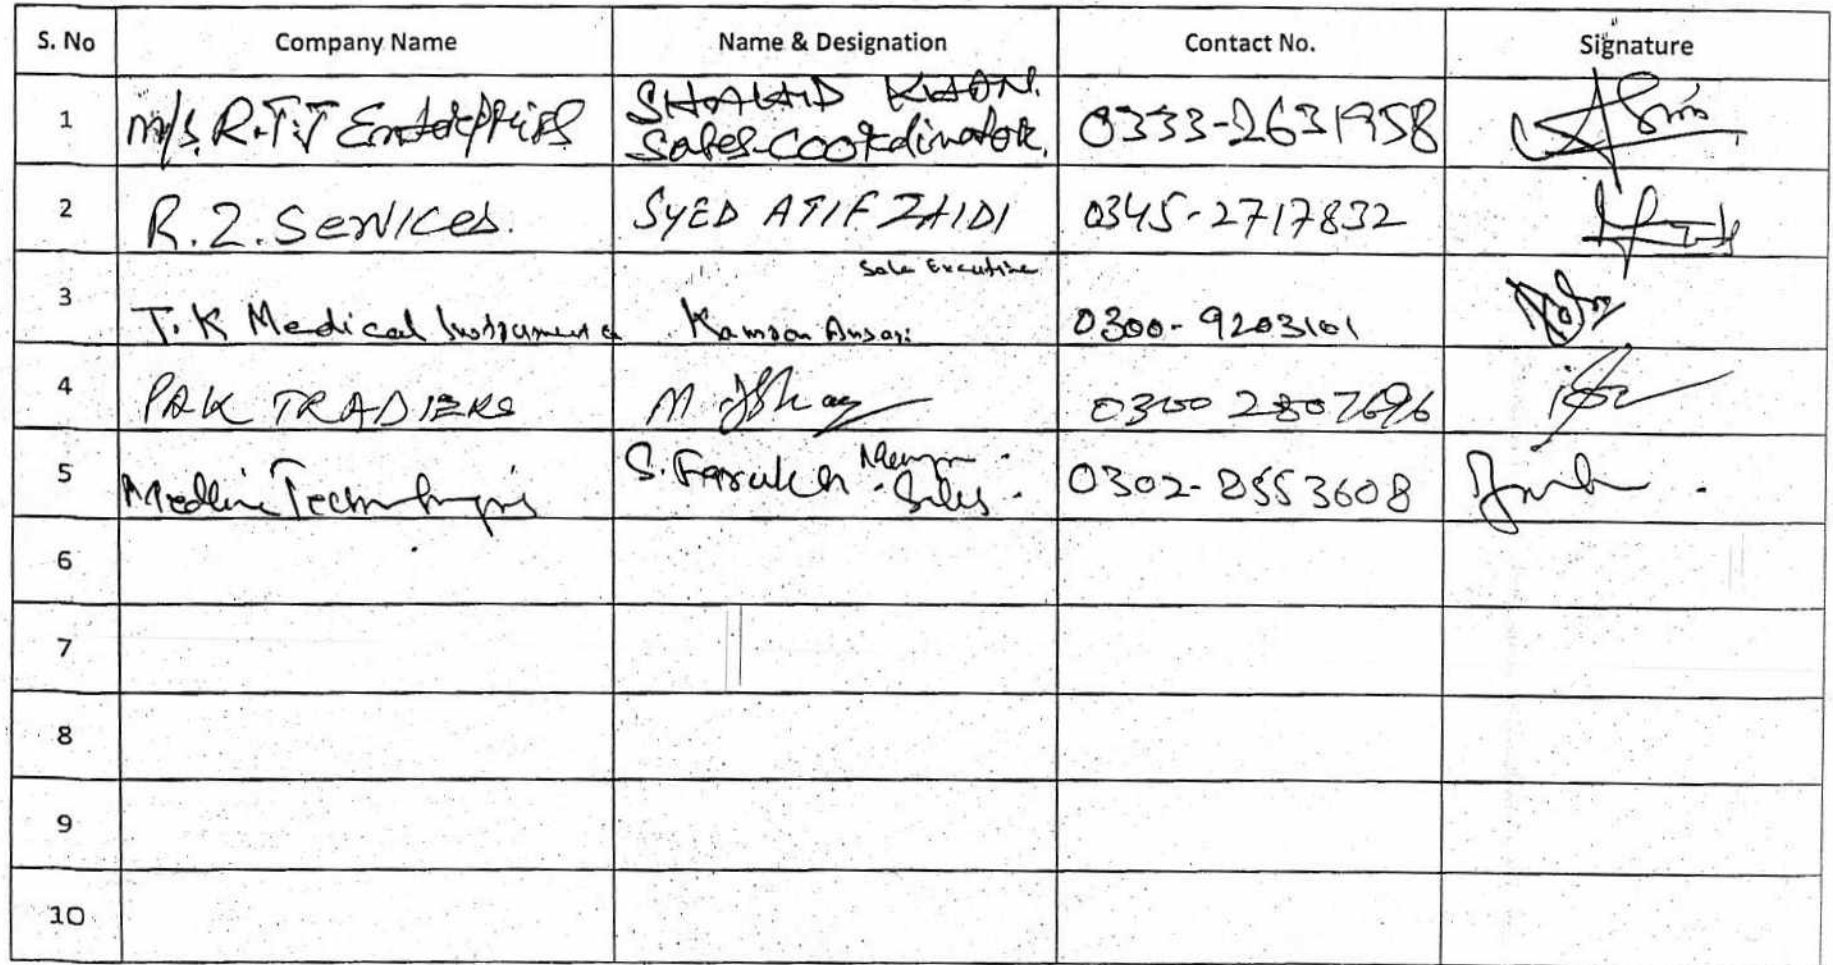 S. No Company Name Name & Designation Contact No. Signature
1 M/s. R.T.J Enterprises SHAHID KHAN. Sales Coordinator. 0333-2631958
2 R.Z. Services. SYED ATIF ZAIDI 0345-2717832
Sale Executive
3 T.K Medical Instruments Kamran Ansari 0300-9203101
4 PAK TRADERS M. 0300 2807696
5 Medline Technologies S. Farukh Manager Sales. 0302-8553608
6
7
8
9
10